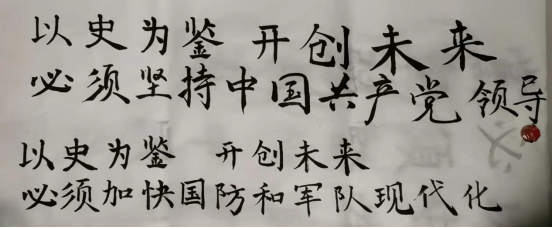 以史为鉴 开创未来
必须坚持中国共产党领导
以史为鉴 开创未来
必须加快国防和军队现代化